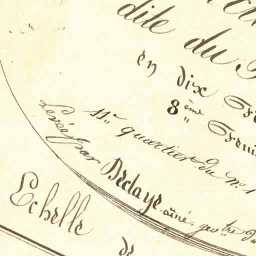 dite du
en dix
8ème
11e quartier du n° 1
Levée par Declaye aîné géotre du
Echelle de